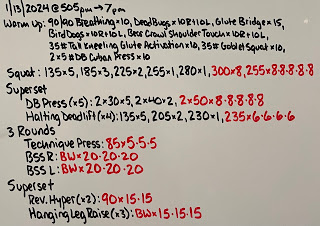 1/13/2024 @ 505pm → 7pm
Warm Up: 90/90 Breathing×10, Dead Bugs×10R+10L, Glute Bridge×15,
Bird Dogs×10R+10L, Bear Crawl Shoulder Touch×10R+10L,
35# Tall Kneeling Glute Activation×10, 35# Goblet Squat×10,
2×5# DB Cuban Press×10
Squat: 135×5, 185×3, 225×2, 255×1, 280×1, 300×8, 255×8·8·8·8·8
Superset
DB Press (×5): 2×30×5, 2×40×2, 2×50×8·8·8·8·8
Halting Deadlift (×4): 135×5, 205×2, 230×1, 235×6·6·6·6
3 Rounds
Technique Press: 85×5·5·5
BSS R: BW×20·20·20
BSS L: BW×20·20·20
Superset
Rev. Hyper (×2): 90×15·15
Hanging Leg Raise (×3): BW×15·15·15